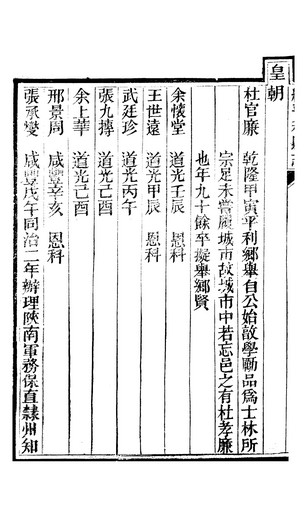 皇朝
杜官廉 乾隆甲寅平利鄉舉自公始敦學勵品為士林所
宗足未嘗履城市故城市中若忘邑之有杜孝廉
也年九十餘卒擬舉鄉賢
余懷堂 道光壬辰 恩科
王世遠 道光甲辰 恩科
武廷珍 道光丙午
張九搏 道光己酉
余上華 道光己酉
邢景周 咸豐辛亥 恩科
張承燮 咸豐戊午同治二年辦理陝南軍務保直隸州知